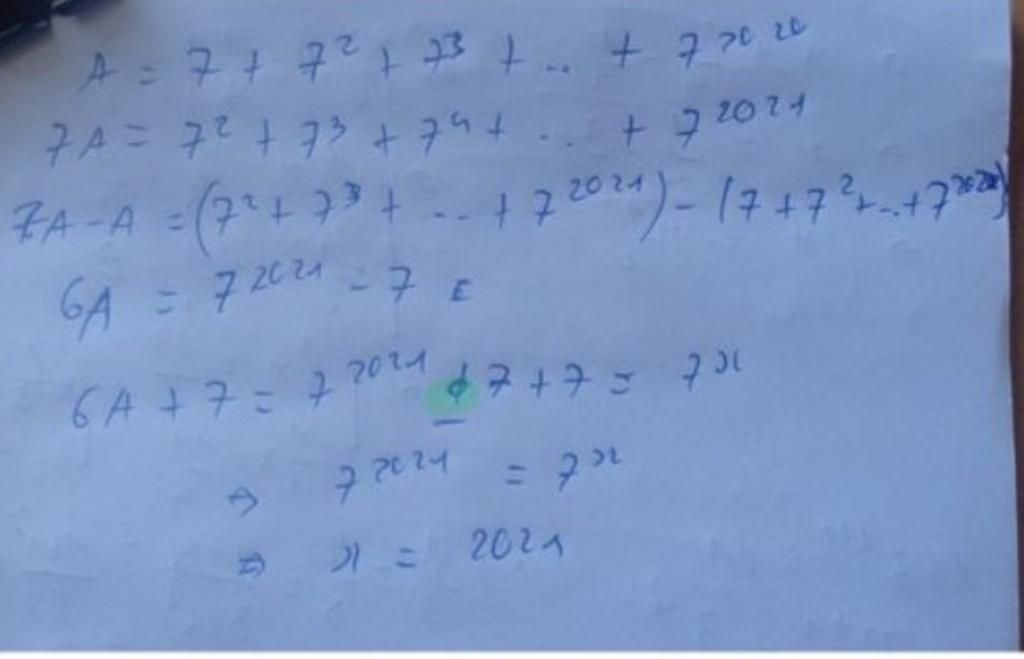 A = 7 + 7² + 7³ + .. + 7²⁰²⁰
7A = 7² + 7³ + 7⁴ + .. + 7²⁰²¹
7A - A = (7² + 7³ + ... + 7²⁰²¹) - (7 + 7² + ... + 7²⁰²⁰)
6A = 7²⁰²¹ - 7
6A + 7 = 7²⁰²¹ - 7 + 7 = 7ˣ
⇒ 7²⁰²¹ = 7ˣ
⇒ x = 2021